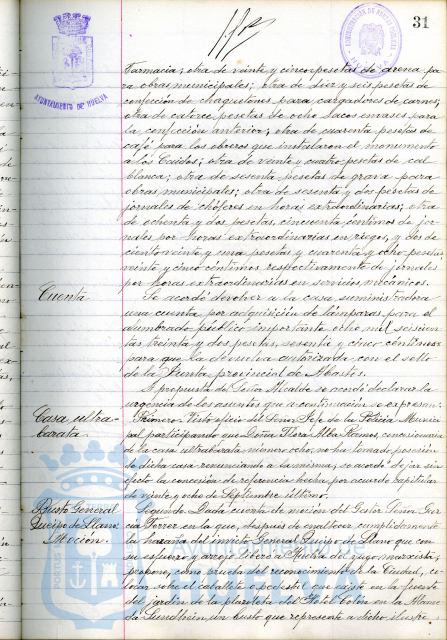 31
AYUNTAMIENTO DE HUELVA
Farmacia; otra de veinte y cinco pesetas de arena pa-
ra obras municipales; otra de diez y seis pesetas de
confección de chaquetones para cargadores de carnes
otra de catorce pesetas de ocho sacos envases para
la confección anterior; otra de cuarenta pesetas de
café para los obreros que instalaron el monumento
a los Caidos; otra de veinte y cuatro pesetas de cal
blanca; otra de sesenta pesetas de grava para
obras municipales; otra de sesenta y dos pesetas de
jornales de chóferes en horas extraordinarias; otra
de ochenta y dos pesetas, cincuenta céntimos de jor-
nales por horas extraordinarias en riegos, y dos de
ciento veinte y una pesetas y cuarenta y ocho pesetas
veinte y cinco céntimos respectivamente de jornales
por horas extraordinarias en servicios mecánicos.
Cuenta
Se acordó devolver a la casa suministradora
una cuenta por adquisición de lámparas para el
alumbrado público importante ocho mil seiscien-
tas treinta y dos pesetas, sesenta y cinco céntimos
para que la devuelva autorizada con el sello
de la Junta provincial de Abastos.
A propuesta del Señor Alcalde se acordó declarar la
urgencia de los asuntos que a continuación se expresan:
Casa ultra-
barata
Primero. Visto oficio del Señor Jefe de la Policia Munici-
pal participando que Doña Flora Alba Ramos, concesionaria
de la casa ultrabarata número ocho, no ha tomado posesión
de dicha casa renunciando a la misma, se acordó dejar sin
efecto la concesión de referencia hecha por acuerdo capitular
de veinte y ocho de Septiembre último.
Busto General
Queipo de Llano
Moción.
Segundo. Dada cuenta de moción del Gestor Señor Gar-
cía Ferrer en la que, después de enaltecer cumplidamente
la hazaña del invicto General Queipo de Llano que con
su esfuerzo y arrojo liberó a Huelva del yugo marxista,
propone, como prueba del reconocimiento de la Ciudad, co-
locar sobre el caballete o pedestal que existe en la fuente
del jardin de la plazoleta del Hotel Colón en la Alame-
da Sundheim, un busto que represente a dicho ilustre